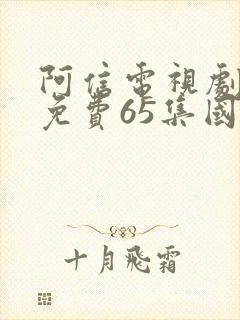 阿信電視劇
免費65集國
十月飛霜